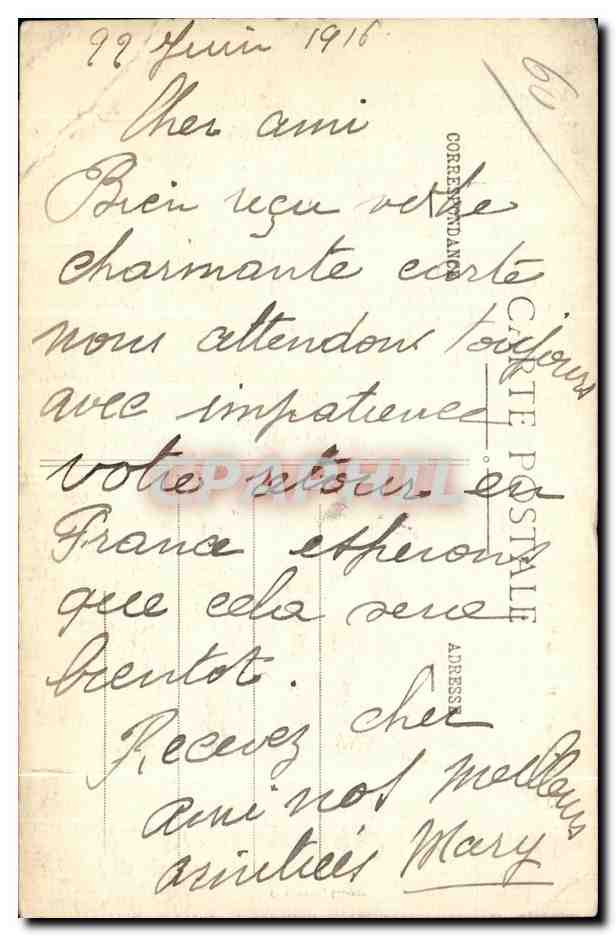 22 Juin 1916
60
Cher ami
Bien reçu votre
charmante carte
nous attendons toujours
avec impatience
votre retour en
France esperons
que cela sera
bientot.
Recevez cher
ami nos meilleurs
amitiées Mary
CORRESPONDANCE
CARTE POSTALE
ADRESSE
CPAPHIL